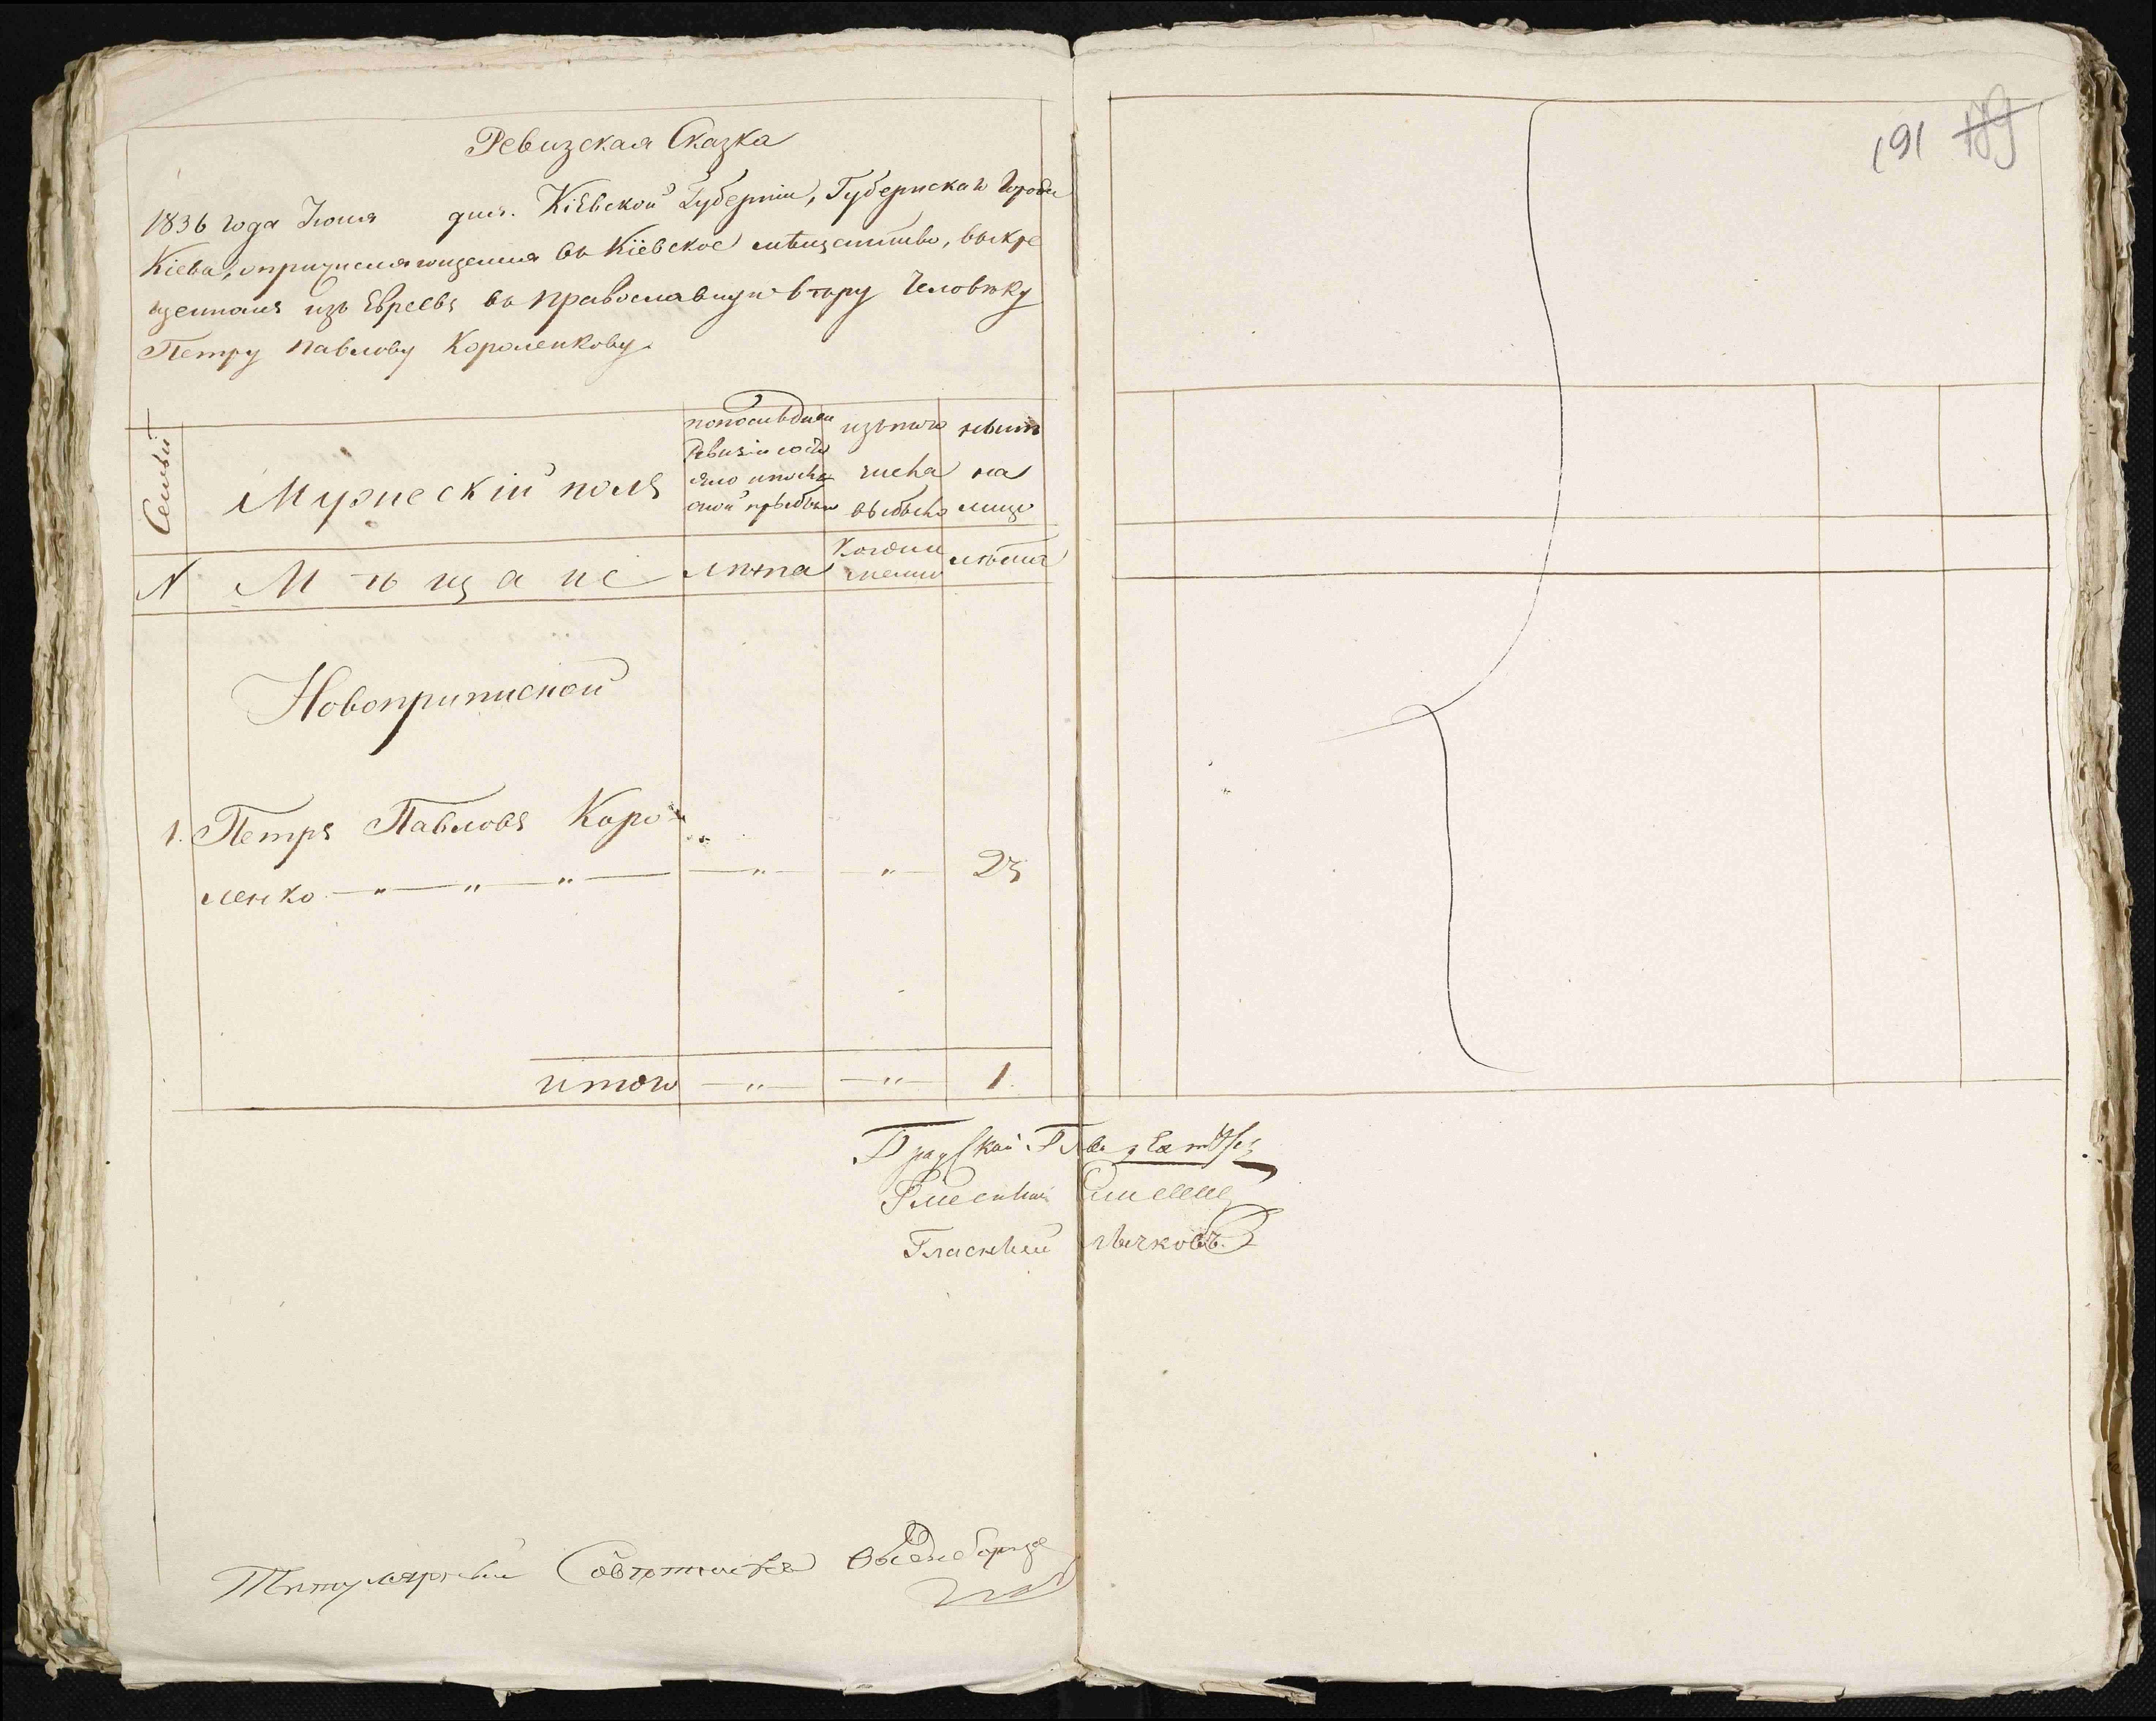 191 189
Ревизская Сказка
1836 года Июня дня. Кіевской Губерніи, Губернскаго Города
Кіева, о причисляющемся въ Кіевское мѣщанство, выкре
щенномъ изъ Евреевъ въ православную вѣру Человѣку
Петру Павлову Короленкову.
Семьи
Мужескій полъ
по последней
Ревизіи состо
яло и после
оной прибыло
изъ того
числа
выбыло
нынѣ
на
лицо
N Мѣщане лѣта Когда именно лѣта
Новоприписной
1. Петръ Павловъ Коро-
ленко — „ — „ — „ — — „ — — „ — 23
итого — „ — — „ — 1.
Градской Глава
Гласный
Гласный Лычковъ.
Титулярный Совѣтникъ